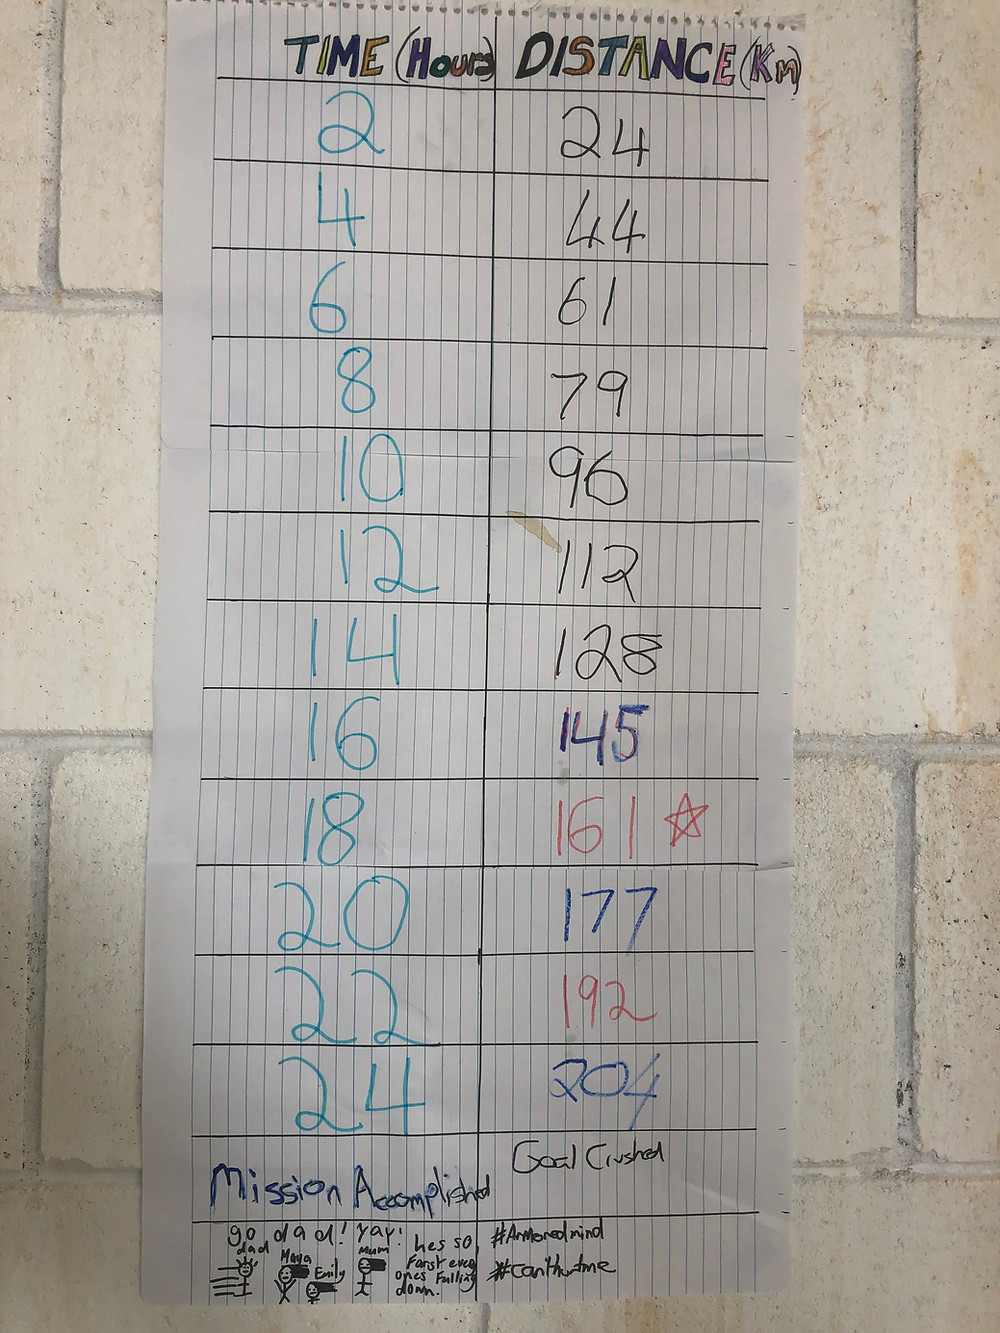 TIME (Hours) DISTANCE (Km)
2 24
4 44
6 61
8 79
10 96
12 112
14 128
16 145
18 161
20 177
22 192
24 204
Mission Accomplished Goal Crushed
go dad! yay!
dad Maya Emily Mum
hes so
farst every
ones falling
down.
#Armoredmind
#canthurtme